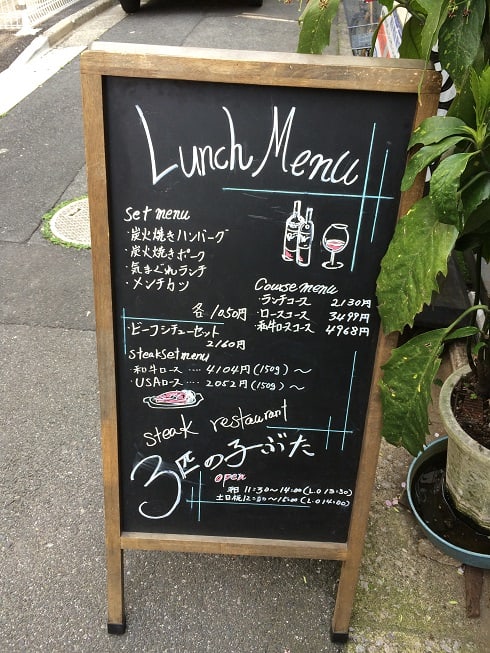 Lunch Menu
set menu
・炭火焼きハンバーグ
・炭火焼きポーク
・気まぐれランチ
・メンチカツ
各 1050円
・ビーフシチューセット
2160円
steak set menu
・和牛ロース ‥‥ 4104円(150g) ～
・USAロース ‥‥ 2052円(150g) ～
Course menu
・ランチコース 2130円
・ロースコース 3499円
・和牛ロスコース 4968円
steak restaurant
3匹の子ぶた
open
11:30～14:00(L.O 13:30)
土日祝12:00～15:00(L.O 14:00)